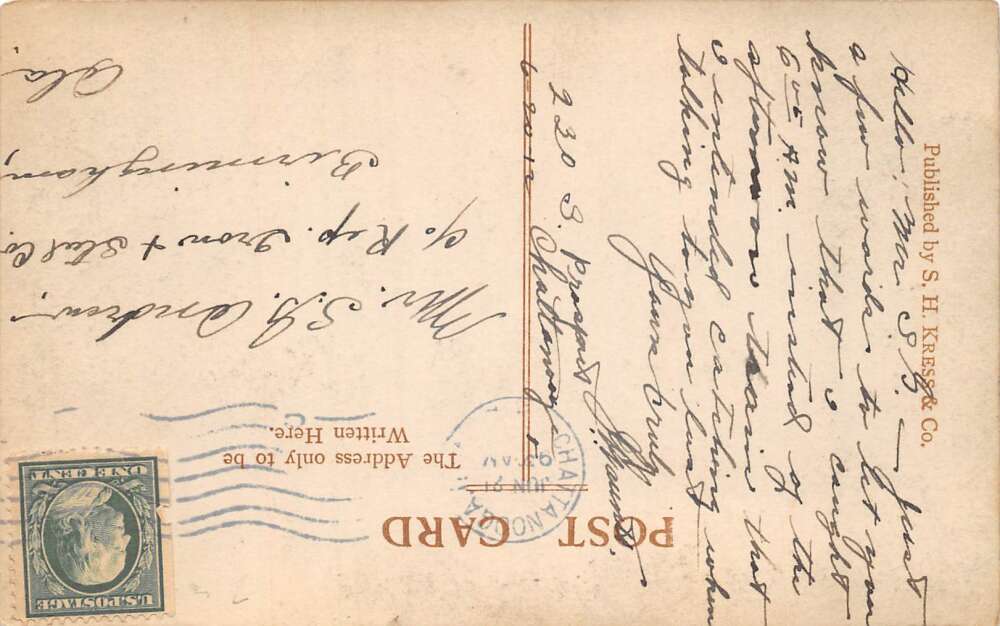 Published by S. H. KRESS & Co.
POST CARD
The Address only to be
Written Here.
CHATTANOOGA
JUN 21
U.S. POSTAGE
ONE CENT
Hello, Mr. S. G. – Just
a few words to let you
know that I caught
6 05 A.M. instead of the
afternoon train that
I intended catching when
talking to you last
Yours truly
230 S. Prospect
Chattanooga
Mr. S. G. Andrew,
c/o Rep. Iron & Steel Co.
Birmingham,
Ala.